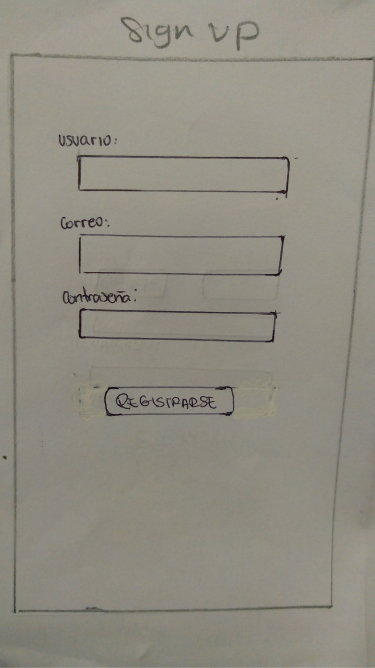 Sign up
usuario:
Correo:
Contraseña:
REGISTRARSE